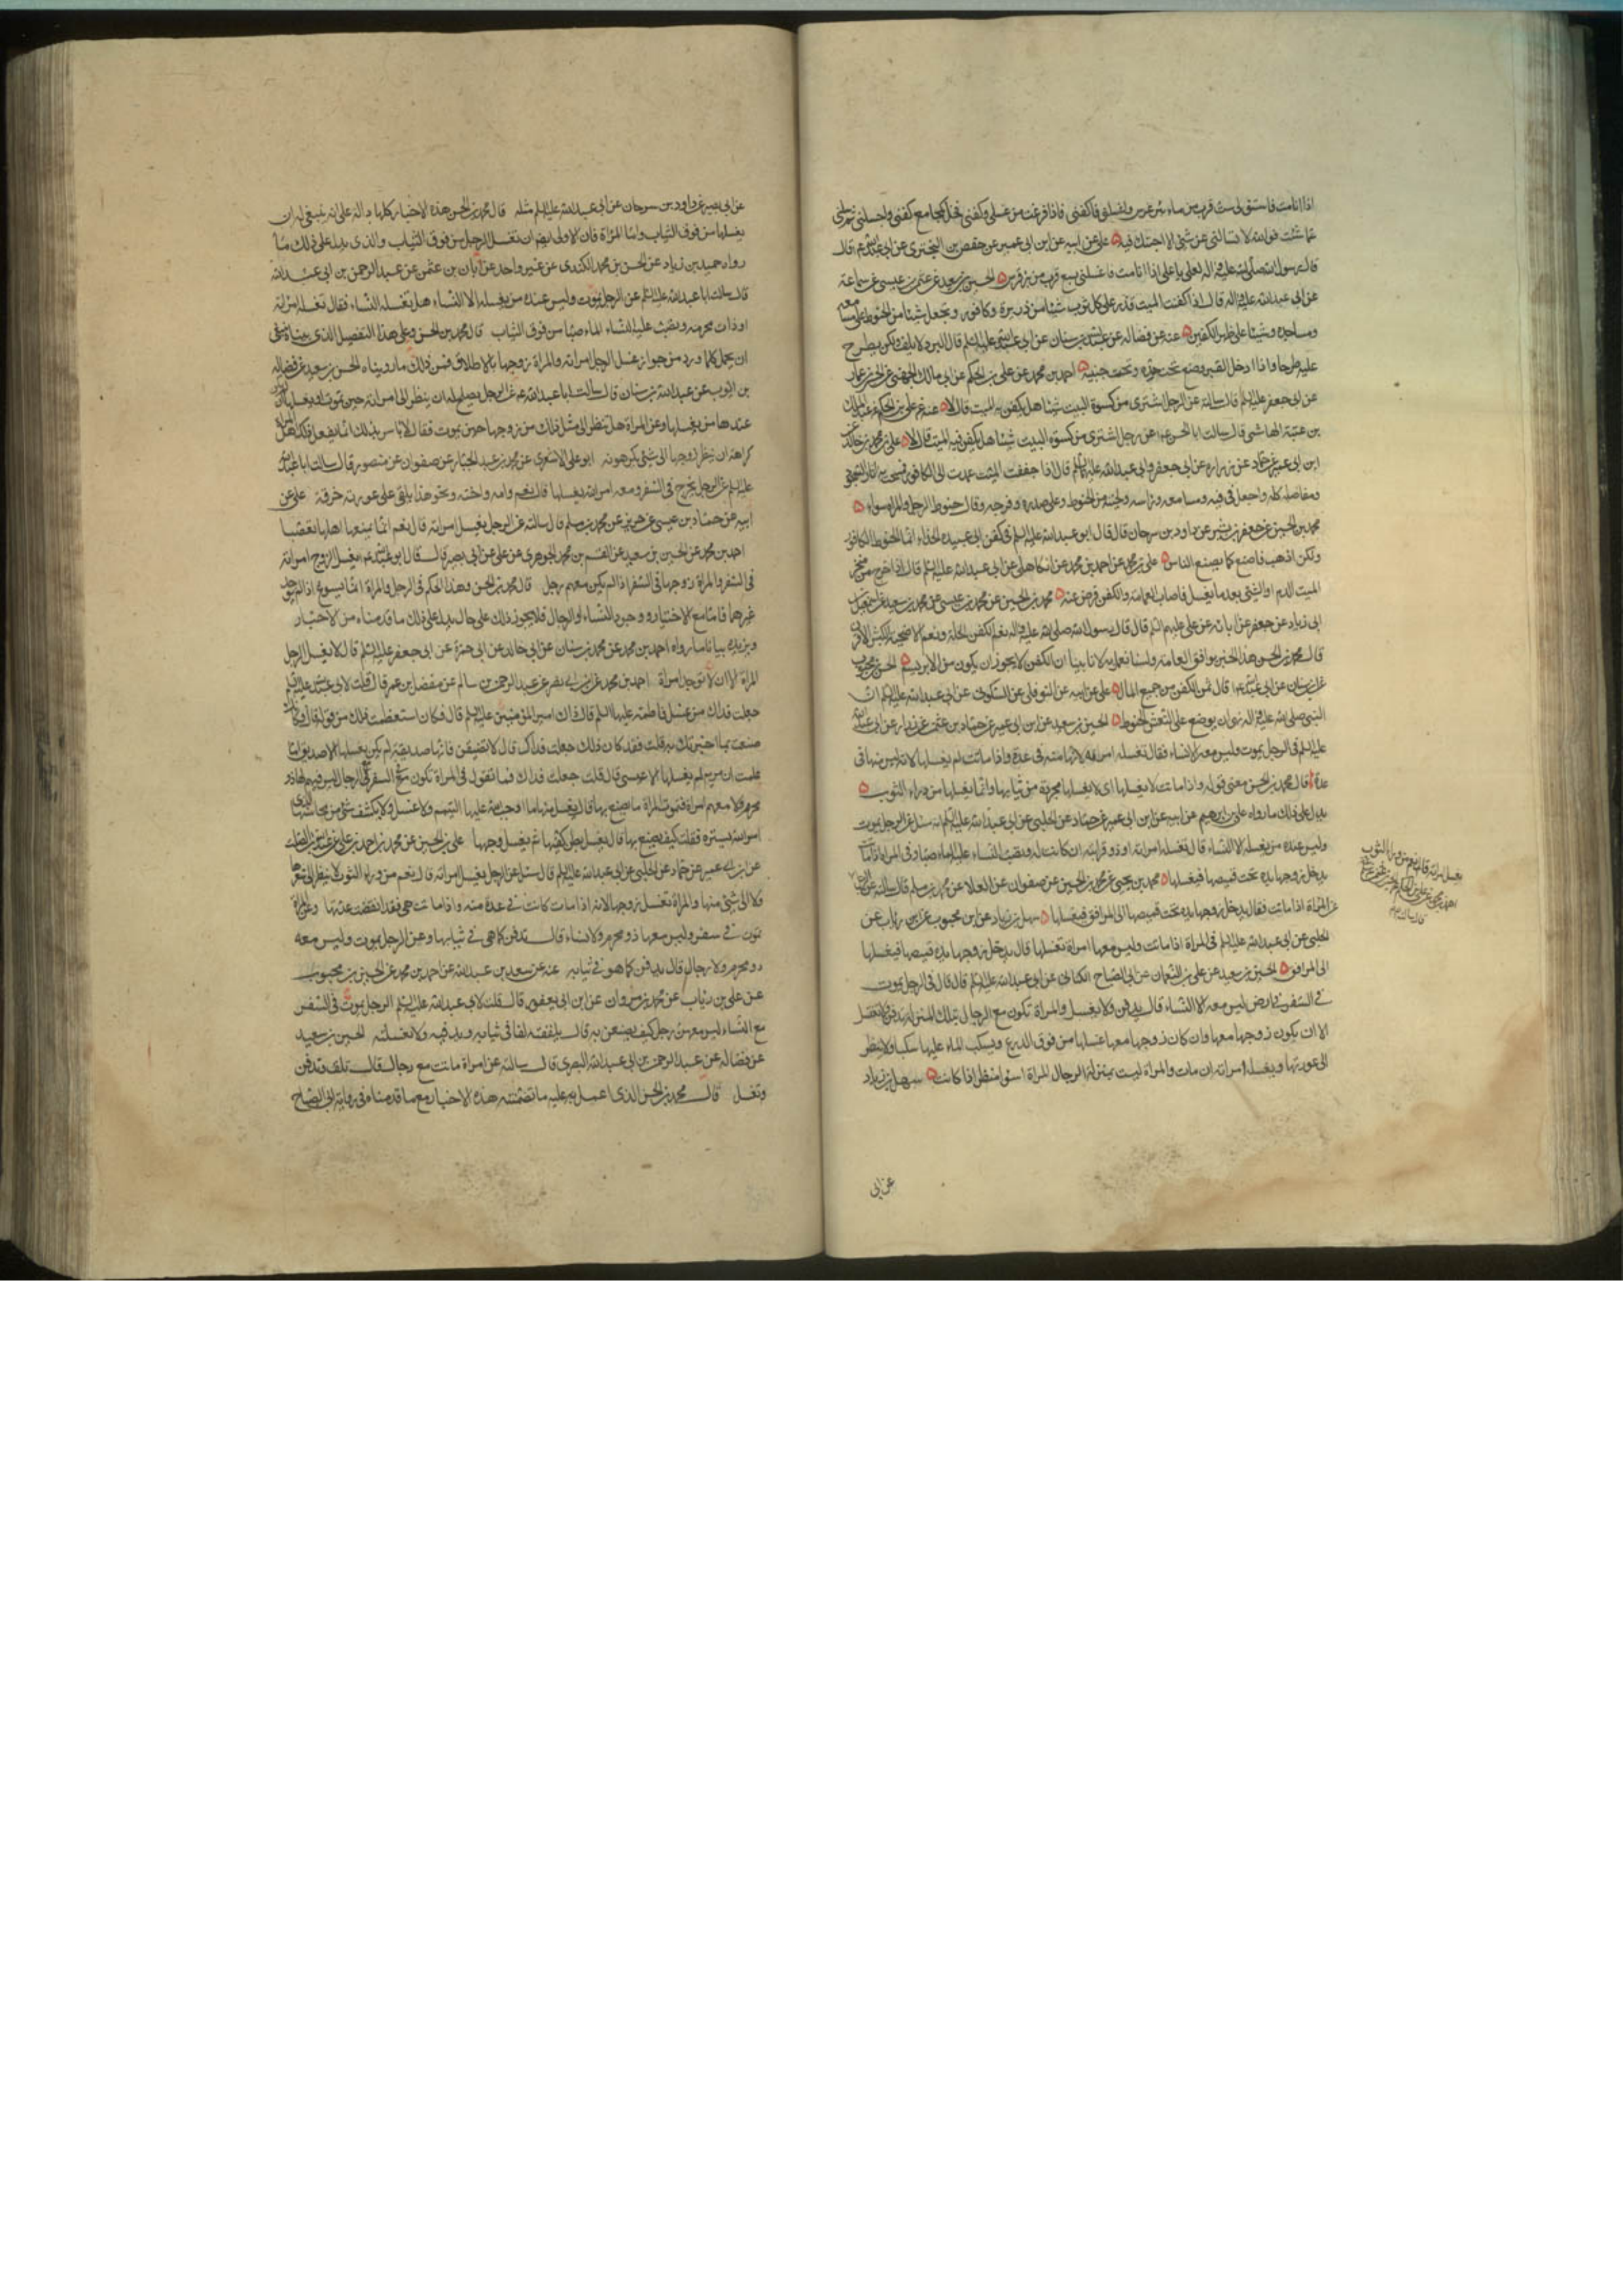 اذا انا مت فاستق لى ست قرب من ماء بئر غرس واغسلنى فاكفنى فاذا فرغت من غسلى وكفنى فخذ بمجامع كفنى واجلسنى ثم سلنى
عما شئت فوالله لا تسالنى عن شئ الا اجبتك فيه على عن ابيه عن ابن ابى عمير عن حفص بن البخترى عن ابى عبدالله ع قال
قال رسول الله صلى الله عليه واله لعلى يا على اذا انا مت فاغسلنى بسبع قرب من بئر غرس الحسين بن سعيد عن عثمن بن عيسى عن سماعة
عن ابى عبدالله عليه قال اذا كفنت الميت فذر على كل ثوب شيئا من ذريرة وكافور وتجعل شيئا من الحنوط على مسامعه
ومساجده وشيئا على ظهر الكفين عنه عن فضاله عن عبدالله بن سنان عن ابى عبدالله عليه السلم قال البرد لا يلف ولكن يطرح
عليه طرحا واذا ادخل القبر وضع تحت خده وتحت جنبيه احمد بن محمد عن على بن الحكم عن ابى مالك الجهنى عن الحسين بن عمار
عن ابى جعفر عليه السلم قال سالته عن الرجل اشترى من كسوة البيت شيئا هل يكفن به الميت قال لا عنه عن على بن الحكم عن عبدالملك
بن عتبة الهاشمى قال سالت ابا الحسن ع عن رجل اشترى من كسوة البيت شيئا هل يكفن فيه الميت قال لا على بن محمد بن خالد عن
ابن ابى عمير عن حماد عن زرارة عن ابى جعفر وابى عبدالله عليهما السلم قال اذا جففت الميت عمدت الى الكافور فمسحت به اثار السجود
ومفاصله كله واجعل فى فيه ومسامعه وراسه ولحيته من الحنوط وعلى صدره وفرجه وقال حنوط الرجل والمراة سواء
محمد بن الحسين عن جعفر بن بشير عن داود بن سرحان قال قال ابو عبدالله عليه السلم فى كفن ابى عبيدة الحذاء انما الحنوط الكافور
ولكن اذهب فاصنع كما يصنع الناس على بن محمد عن احمد بن محمد عن الكاهلى عن ابى عبدالله عليه السلم قال اذا خرج من منخر
الميت الدم او الشئ بعد ما يغسل فاصاب العمامة والكفن قرض عنه محمد بن الحسين عن محمد بن عيسى عن محمد بن سعيد عن اسمعيل بن
ابى زياد عن جعفر عن ابائه عن على عليهم السلم قال قال رسول الله صلى الله عليه واله نعم الكفن الحلة ونعم الاضحية الكبش الاقرن
قال محمد بن الحسن هذا الخبر يوافق العامة ولسنا نعمل به لانا بينا ان الكفن لا يجوز ان يكون من الابريسم الحسن بن محبوب
عن ابن سنان عن ابى عبدالله ع قال ثمن الكفن من جميع المال على عن ابيه عن النوفلى عن السكونى عن ابى عبدالله عليه السلم ان
النبى صلى الله عليه واله نهى ان يوضع على النعش الحنوط الحسين بن سعيد عن ابن ابى عمير عن حماد بن عثمن عن زرارة عن ابى عبدالله
عليه السلم فى الرجل يموت وليس معه الا النساء فقال تغسله امراته لانها منه فى عدة واذا ماتت لم يغسلها لانه ليس منها فى
عدة قال محمد بن الحسن معنى قوله واذا ماتت لا يغسلها اى لا يغسلها مجردة من ثيابها وانما يغسلها من وراء الثوب
يدل على ذلك ما رواه على بن ابرهيم عن ابيه عن ابن ابى عمير عن حماد عن الحلبى عن ابى عبدالله عليه السلم انه سئل عن الرجل يموت
وليس عنده من يغسله الا النساء قال تغسله امراته او ذو قرابته ان كانت له وتصب النساء عليه الماء صبا وفى المراة اذا ماتت
يدخل زوجها يده تحت قميصها فيغسلها محمد بن يحيى عن محمد بن الحسين عن صفوان عن العلا عن محمد بن مسلم قال سالته عن الرجل
عن المراة اذا ماتت فقال يدخل زوجها يده تحت قميصها الى المرافق فيغسلها سهل بن زياد عن ابن محبوب عن ابن رئاب عن
الحلبى عن ابى عبدالله عليه السلم فى المراة اذا ماتت وليس معها امراة تغسلها قال يدخل زوجها يده قميصها فيغسلها
الى المرافق الحسين بن سعيد عن على بن النعمان عن ابى الصباح الكنانى عن ابى عبدالله عليه السلم قال قال فى الرجل يموت
فى السفر فى ارض ليس معه الا النساء قال يدفن ولا يغسل والمراة تكون مع الرجال بتلك المنزلة تدفن ولا تغسل
الا ان يكون زوجها معها وان كان زوجها معها غسلها من فوق الدرع ويسكب الماء عليها سكبا ولا ينظر
الى عورتها ويغسله امراته ان مات والمراة ليست بمنزلة الرجال المراة اسوا منظرا اذا كانت سهل بن زياد
يغسل امراته قال نعم من وراء الثوب
عن ابى
عن ابى بصير عن داود بن سرحان عن ابى عبدالله عليه السلم مثله قال محمد بن الحسن هذه الاخبار كلها دالة على انه ينبغى له ان
يغسلها من فوق الثياب واما المراة فان الاولى ايضا ان تغسل الرجل من فوق الثياب والذى يدل على ذلك ما
رواه حميد بن زياد عن الحسن بن محمد الكندى عن غير واحد عن ابان بن عثمن عن عبدالرحمن بن ابى عبدالله
قال سالت ابا عبدالله عليه السلم عن الرجل يموت وليس عنده من يغسله الا النساء هل تغسله النساء فقال تغسله امراته
او ذات محرمه وتصب عليه النساء الماء صبا من فوق الثياب قال محمد بن الحسن وعلى هذا التفصيل الذى بيناه ينبغى
ان يحمل كلما ورد من جواز غسل الرجل امراته والمراة زوجها بالاطلاق فمن ذلك ما رويناه الحسن بن سعيد عن فضاله
بن ايوب عن عبدالله بن سنان قال سالت ابا عبدالله ع عن الرجل يصلح له ان ينظر الى امراته حين تموت او يغسلها ان لم يكن
عندها من يغسلها وعن المراة هل تنظر الى مثل ذلك من زوجها حين يموت فقال لا باس بذلك انما يفعل ذلك اهل المراة
كراهة ان ينظر زوجها الى شئ يكرهونه ابو على الاشعرى عن محمد بن عبدالجبار عن صفوان عن منصور قال سالت ابا عبدالله
عليه السلم عن الرجل يخرج فى السفر ومعه امراته يغسلها قال نعم وامه واخته ونحو هذا يلقى على عورته خرقة على عن
ابيه عن حماد بن عيسى عن حريز عن محمد بن مسلم قال سالته عن الرجل يغسل امراته قال نعم انما يمنعها اهلها تعصبا
احمد بن محمد عن الحسين بن سعيد عن القسم بن محمد الجوهرى عن على عن ابى بصير قال قال ابو عبدالله ع يغسل الزوج امراته
فى السفر والمراة زوجها فى السفر اذا لم يكن معهم رجل قال محمد بن الحسن وهذا الحكم فى الرجل والمراة انما يسوغ اذا لم يوجد
غيرهما فاما مع الاختيار ووجود النساء او الرجال فلا يجوز ذلك على حال يدل على ذلك ما قدمناه من الاخبار
ويزيده بيانا ما رواه احمد بن محمد عن محمد بن سنان عن ابى خالد عن ابى حمزة عن ابى جعفر عليه السلم قال لا يغسل الرجل
المراة الا ان لا توجد امراة احمد بن محمد عن ابن ابى نصر عن عبدالرحمن بن سالم عن مفضل بن عمر قال قلت لابى عبدالله عليه السلم
جعلت فداك من غسل فاطمة عليها السلم قال ذاك امير المؤمنين عليه السلم قال فكان استعظمت ذلك من قوله قال وكانك
ضقت بما اخبرتك به قلت فقد كان ذلك جعلت فداك قال لا تضيقن فانها صديقة لم يكن يغسلها الا صديق اما
علمت ان مريم لم يغسلها الا عيسى قال قلت جعلت فداك فما تقول فى المراة تكون فى السفر مع الرجال ليس فيهم لها ذو
محرم ولا معهم امراة فتموت المراة ما يصنع بها قال يغسل منها ما اوجب الله عليها التيمم ولا تغسل ولا يكشف شئ من محاسنها الذى
امر الله بستره فقلت كيف يصنع بها قال يغسل بطن كفيها ثم يغسل وجهها على بن الحسين عن محمد بن احمد بن على عن عبدالله بن الصلت
عن ابن ابى عمير عن حماد عن الحلبى عن ابى عبدالله عليه السلم قال سئل عن الرجل يغسل امراته قال نعم من وراء الثوب لا ينظر الى شعرها
ولا الى شئ منها والمراة تغسل زوجها لانه اذا مات كانت فى عدة منه واذا ماتت هى فقد انقضت عدتها وعن المراة
تموت فى سفر وليس معها ذو محرم ولا نساء قال تدفن كما هى فى ثيابها وعن الرجل يموت وليس معه
ذو محرم ولا رجال قال يدفن كما هو فى ثيابه عنه عن سعد بن عبدالله عن احمد بن محمد عن الحسين بن محبوب
عن على بن رئاب عن محمد بن مروان عن ابن ابى يعفور قال قلت لابى عبدالله عليه السلم الرجل يموت فى السفر
مع النساء ليس معهن رجل كيف يصنعن به قال يلففنه لفا فى ثيابه ويدفنه ولا يغسلنه الحسين بن سعيد
عن فضاله عن عبدالرحمن بن ابى عبدالله البصرى قال سالته عن امراة ماتت مع رجال قال تلف وتدفن
وتغسل قال محمد بن الحسن الذى اعمل به عليه ما تضمنته هذه الاخبار مع ما قدمناه فى رواية ابى الصباح